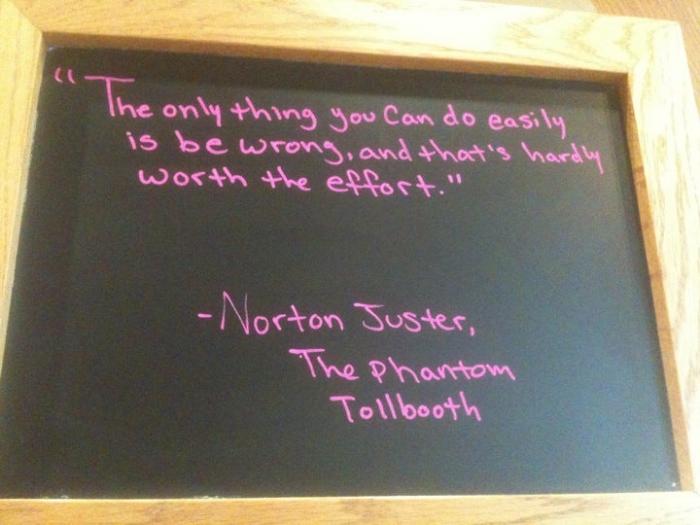 "The only thing you Can do easily
is be wrong, and that's hardly
worth the effort."
-Norton Juster,
The Phantom
Tollbooth